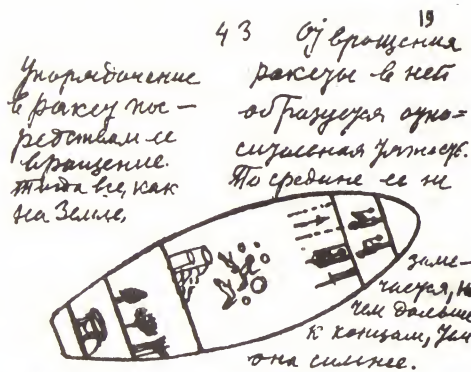 19
43
Упорядочение
в ракету пос-
редством ее
вращение.
Тогда все, как
на Земле,
От вращения
ракеты в ней
образуется отно=
сительная тяжесть.
По средине ее не
заме-
чается, но
чем дальше
к концам, тем
она сильнее.